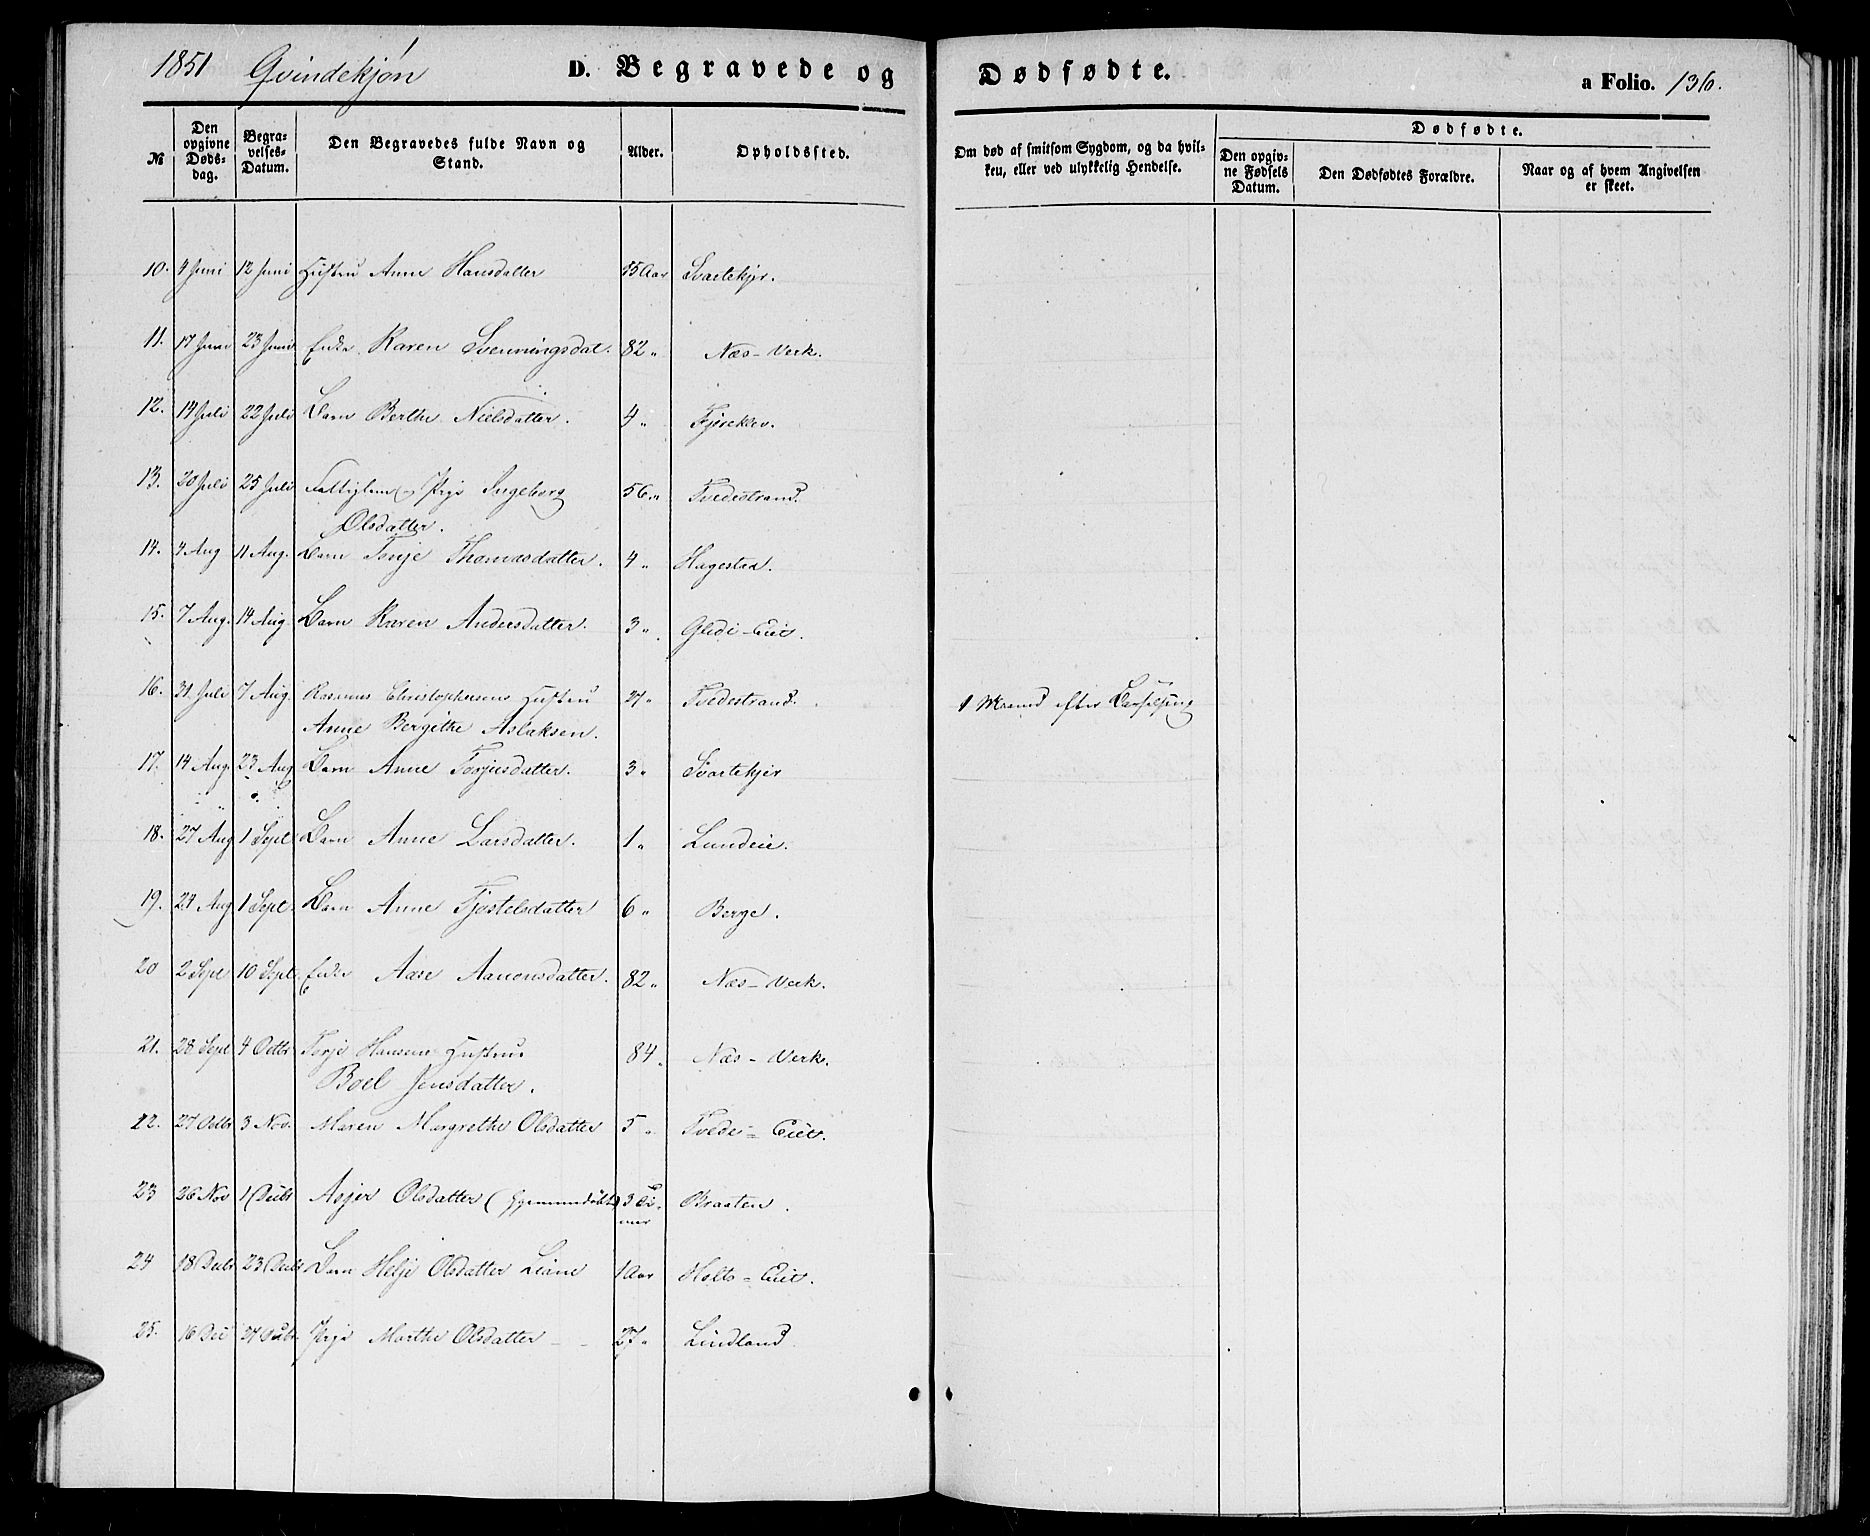 1851 Qvindekjøn D. Begravede og Dødfødte. a Folio. 136.
№ Den opgivne Døds-dag. Begra-velses-Datum. Den Begravedes fulde Navn og Stand. Alder. Opholdssted. Om død af smitsom Sygdom, og da hvil-ken, eller ved ulykkelig Hendelse. Dødfødte. Den opgiv-ne Fødsels Datum. Den Dødfødtes Forældre. Naar og af hvem Angivelsen er skeet.
10. 4 Juni 12 Juni Hustru Anne Hansdatter Aar Svartekjer.
11. 17 Juni 23 Juni Enke Karen Svenningsdat. 82 " Næs-Verk.
12. 14 Juli 22 Juli Barn Berthe Nielsdatter. 4 " Fjøreklev.
13. 20 Juli 25 Juli Fattiglem Pige Ingeborg 56 " Tvedestrand.
Olsdatter.
14. 4 Aug 11 Aug. Barn Terje Thomasdatter. 4 " Hagestad.
15. 7 Aug. 14 Aug. Barn Karen Andersdatter. 3 " Gledi-Eiet.
16. 31 Juli 7 Aug. Rasmus Christophersens Hustru 27 " Tvedestrand. 1 Maaned efter Barselseng
Anne Bergithe Aslaksen.
17. 14 Aug. 23 Aug Barn Anne Terjusdatter. 3 " Svartekjer
18. 27 Aug 1 Sept Barn Anne Larsdatter. 1 " Lundeie.
19. 24 Aug 1 Sept. Barn Anne Tjøstelsdatter 6 " Berge.
20 2 Sept 10 Sept. Enke Aase Aanonsdatter. 82 " Næs-Verk.
21. 28 Sept 4 Octbr Terje Hansens Hustru 84. Næs-Verk.
Boel Jensdatter.
22. 27 Octbr 3 Nov. Maren Margrethe Olsdatter 5 " Tvede-Eiet.
23 26 Nov 1 Decbr Asjer Olsdatter (Hjemmedøbt) 3 Ti-mer Braaten.
24 18 Decbr 23 Decbr Barn Helje Olsdatter Liane 1 Aar Holts-Eiet.
25. 16 Dec 27 Decbr. Pige Marthe Olsdatter 27 " Lindland